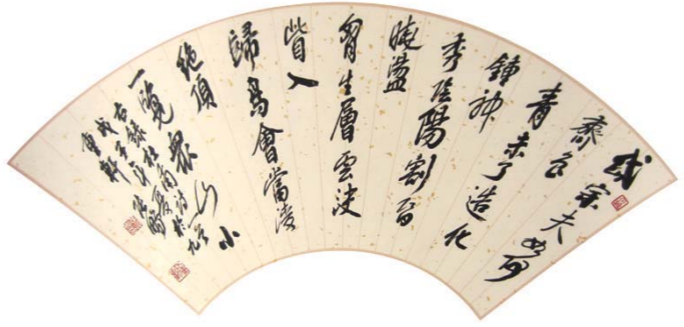 岱宗夫如何
齊魯
青未了造化
鍾神
秀陰陽割昏
曉盪
胸生層雲決
眥入
歸鳥會當凌
絕頂
一覽眾山小
右錄杜甫
戊子
軒